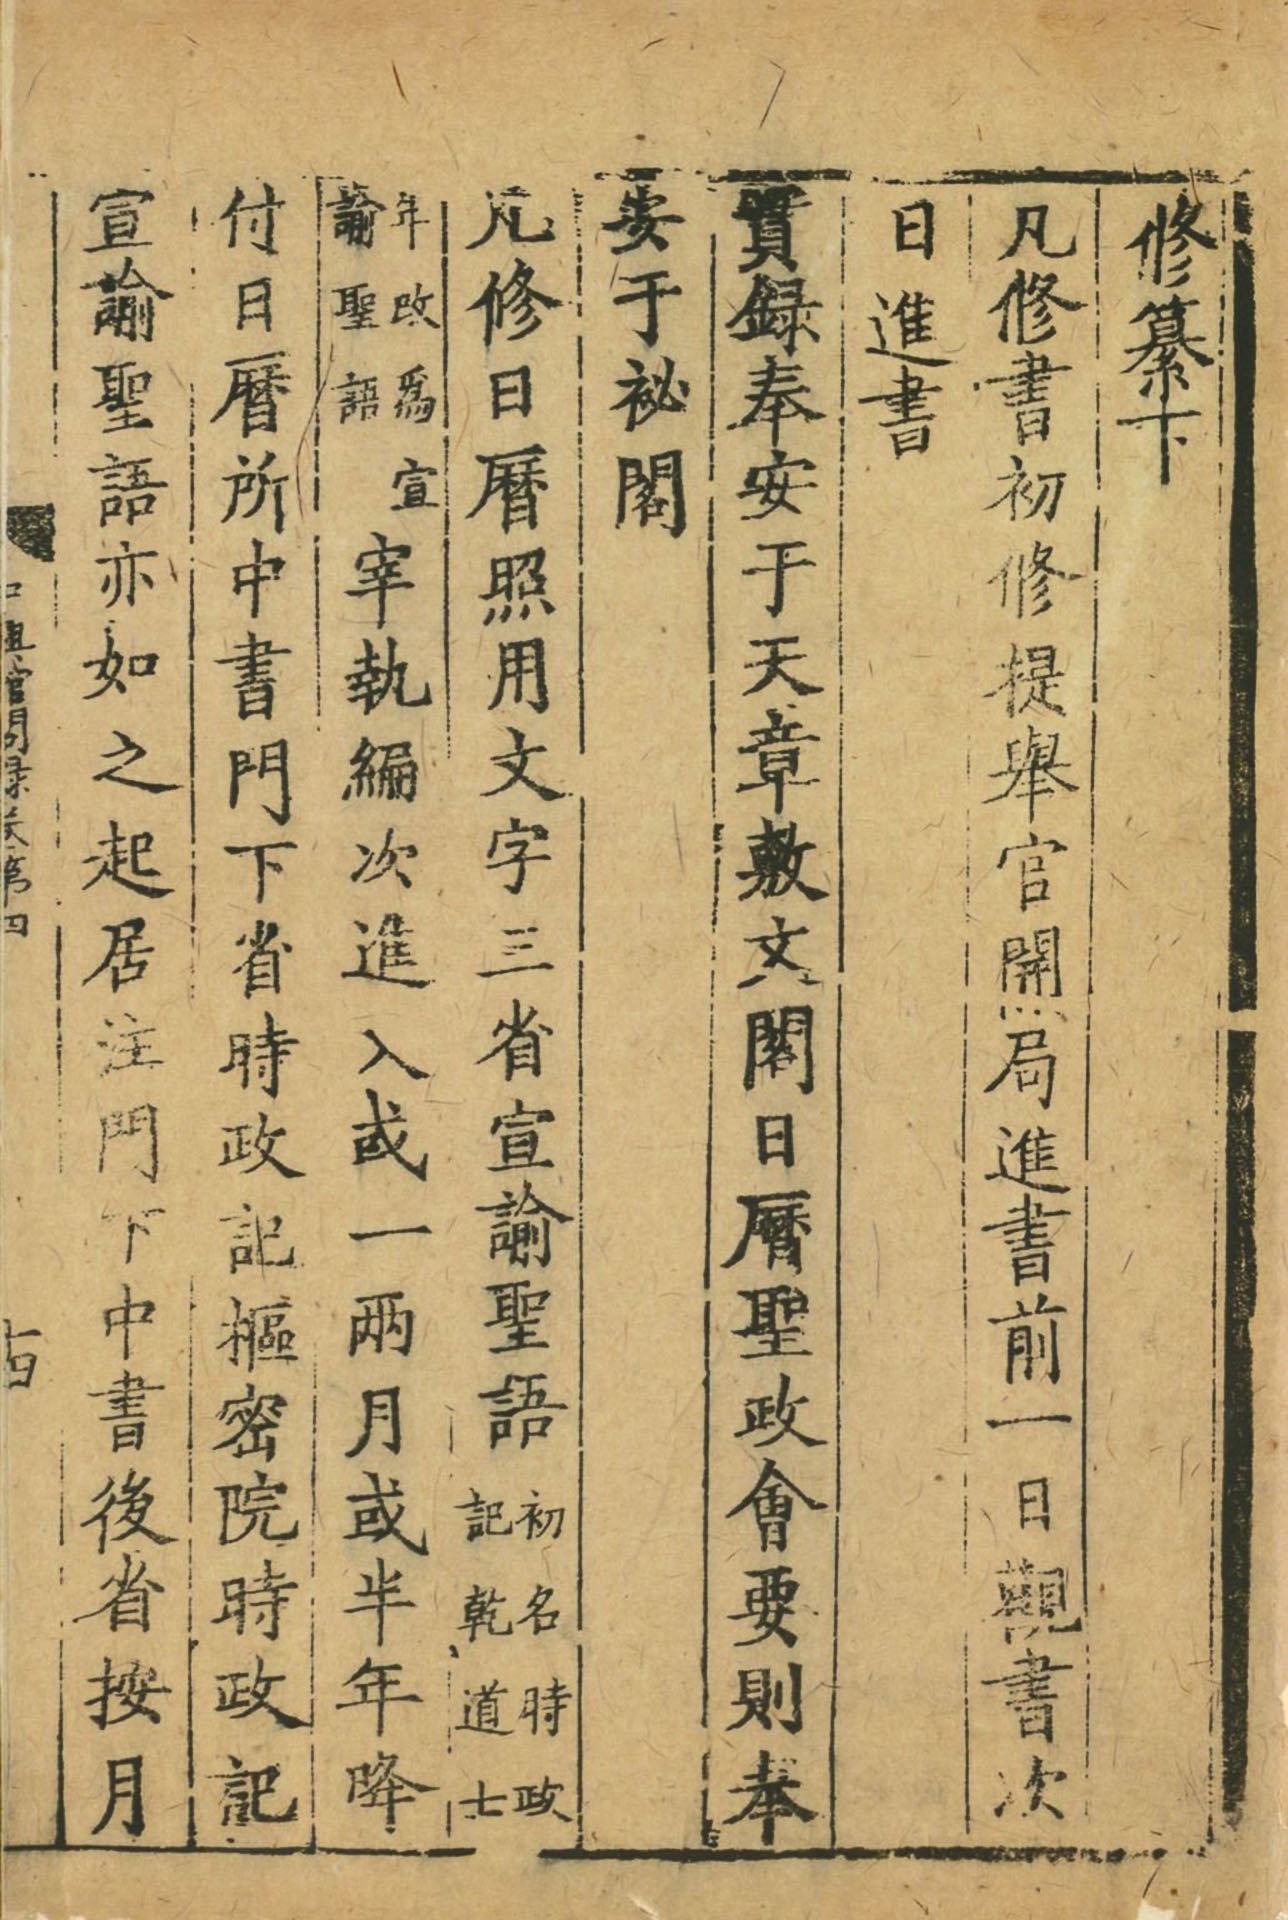 修纂下
凡修書初修提舉官開局進書前一日觀書次
日進書
實録奉安于天章敷文閣日曆聖政會要則奉
安于祕閣
凡修日曆照用文字三省宣諭聖語初名時政記乾道七
年改爲宣諭聖語宰執編次進入或一兩月或半年降
付日曆所中書門下省時政記樞密院時政記
宣諭聖語亦如之起居注門下中書後省按月
中興館閣録卷第四
十四